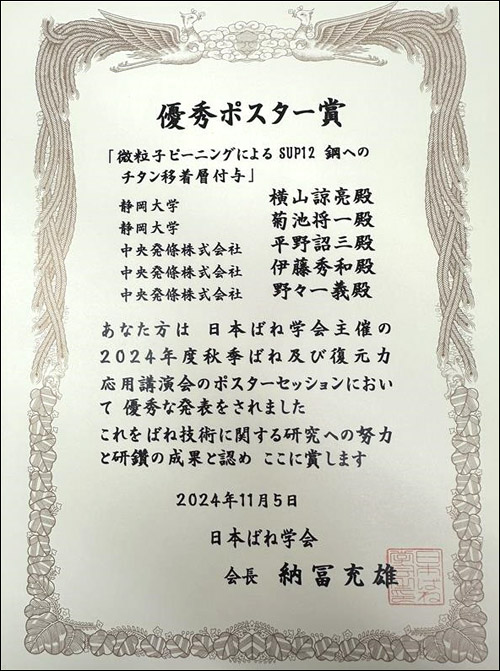 優秀ポスター賞
「微粒子ピーニングによる SUP12 鋼への
チタン移着層付与」
静岡大学 横山諒亮殿
静岡大学 菊池将一殿
中央発條株式会社 平野詔三殿
中央発條株式会社 伊藤秀和殿
中央発條株式会社 野々一義殿
あなた方は 日本ばね学会主催の
2024年度秋季ばね及び復元力
応用講演会のポスターセッションにおい
て 優秀な発表をされました
これをばね技術に関する研究への努力
と研鑽の成果と認め ここに賞します
2024年11月5日
日本ばね学会
会長 納冨充雄